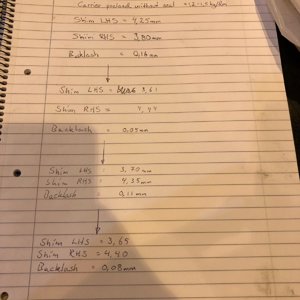 Carrier preload without seal = 1.2-1.5 kg/8m
Shim LHS = 4,25mm
Shim RHS = 3,80mm
Backlash = 0,16mm
Shim LHS = 3,61
Shim RHS = 4,44
Backlash = 0,05mm
Shim LHS = 3,70mm
Shim RHS = 4,35mm
Backlash = 0,11mm
Shim LHS = 3,65
Shim RHS = 4,40
Backlash = 0,08mm